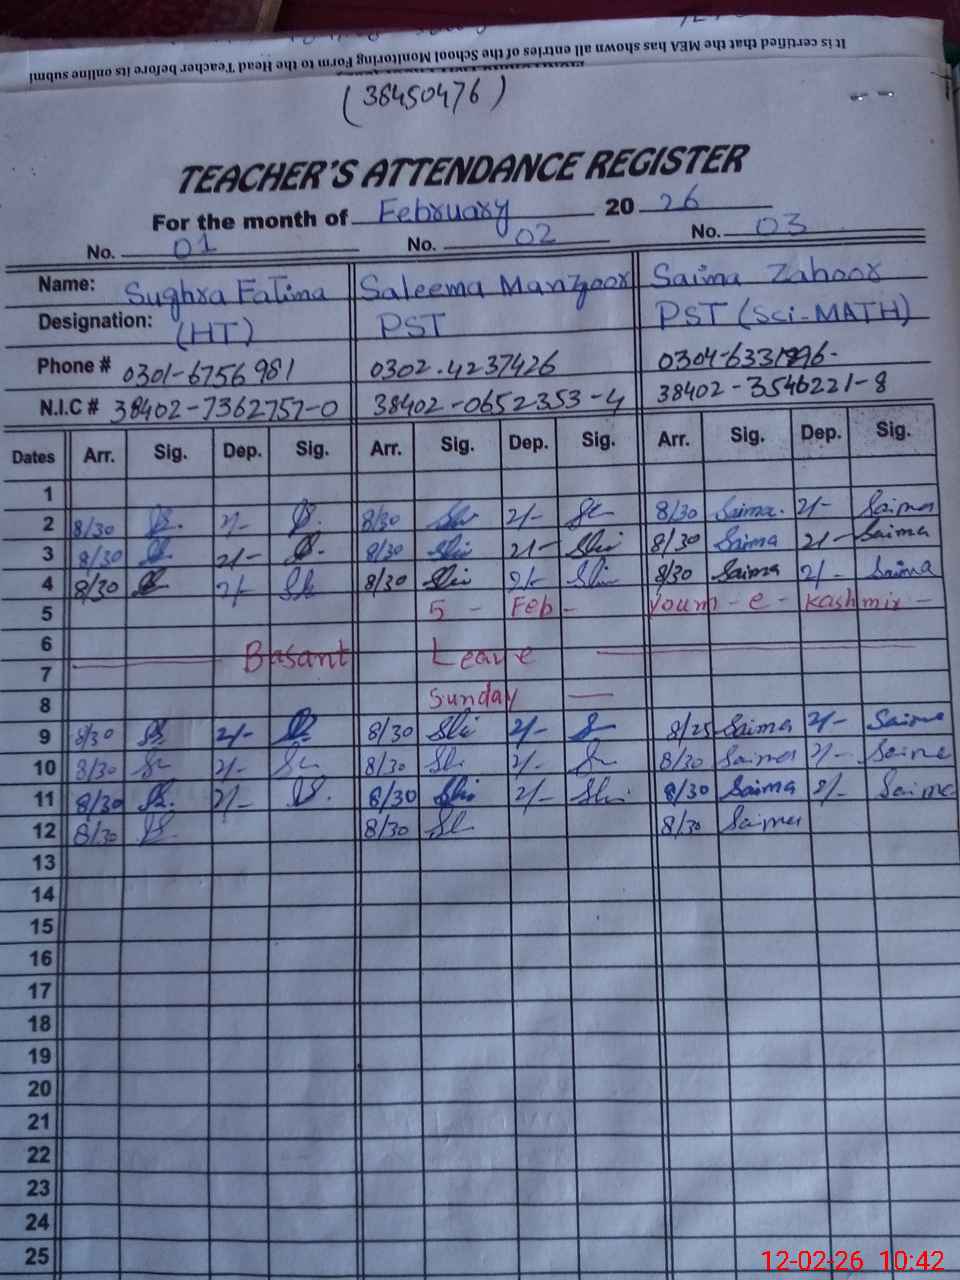 It is certified that the MEA has shown all entries of the School Monitoring Form to the Head Teacher before its online submi
(38450476)
TEACHER'S ATTENDANCE REGISTER
For the month of February 20 26
No. 01 No. 02 No. 03
Name: Sughra Fatima Saleema Manzoor Saima Zahoor
Designation: (HT) PST PST (Sci-MATH)
Phone # 0301-6756981 0302.4237426
N.I.C # 38402-7362757-0 38402-0652353-4 38402-3546221-8
Dates Arr. Sig. Dep. Sig. Arr. Sig. Dep. Sig. Arr. Sig. Dep. Sig.
1
2 8/30 2/- 8/30 2/- 8/30 Saima 2/- Saima
3 8/30 2/- 8/30 2/- 8/30 Saima 2/- Saima
4 8/30 2/- 8/30 2/- 8/30 Saima 2/- Saima
5 5 - Feb - Youm - e - Kashmir -
6
Basant Leave
7
8 Sunday
9 8/30 2/- 8/30 2/- 8/25 Saima 2/- Saima
10 8/30 2/- 8/30 2/- 8/30 Saima 2/- Saima
11 8/30 2/- 8/30 2/- 8/30 Saima Saima
12 8/30 8/30 8/30 Saima
13
14
15
16
17
18
19
20
21
22
23
24
25
12-02-26 10:42